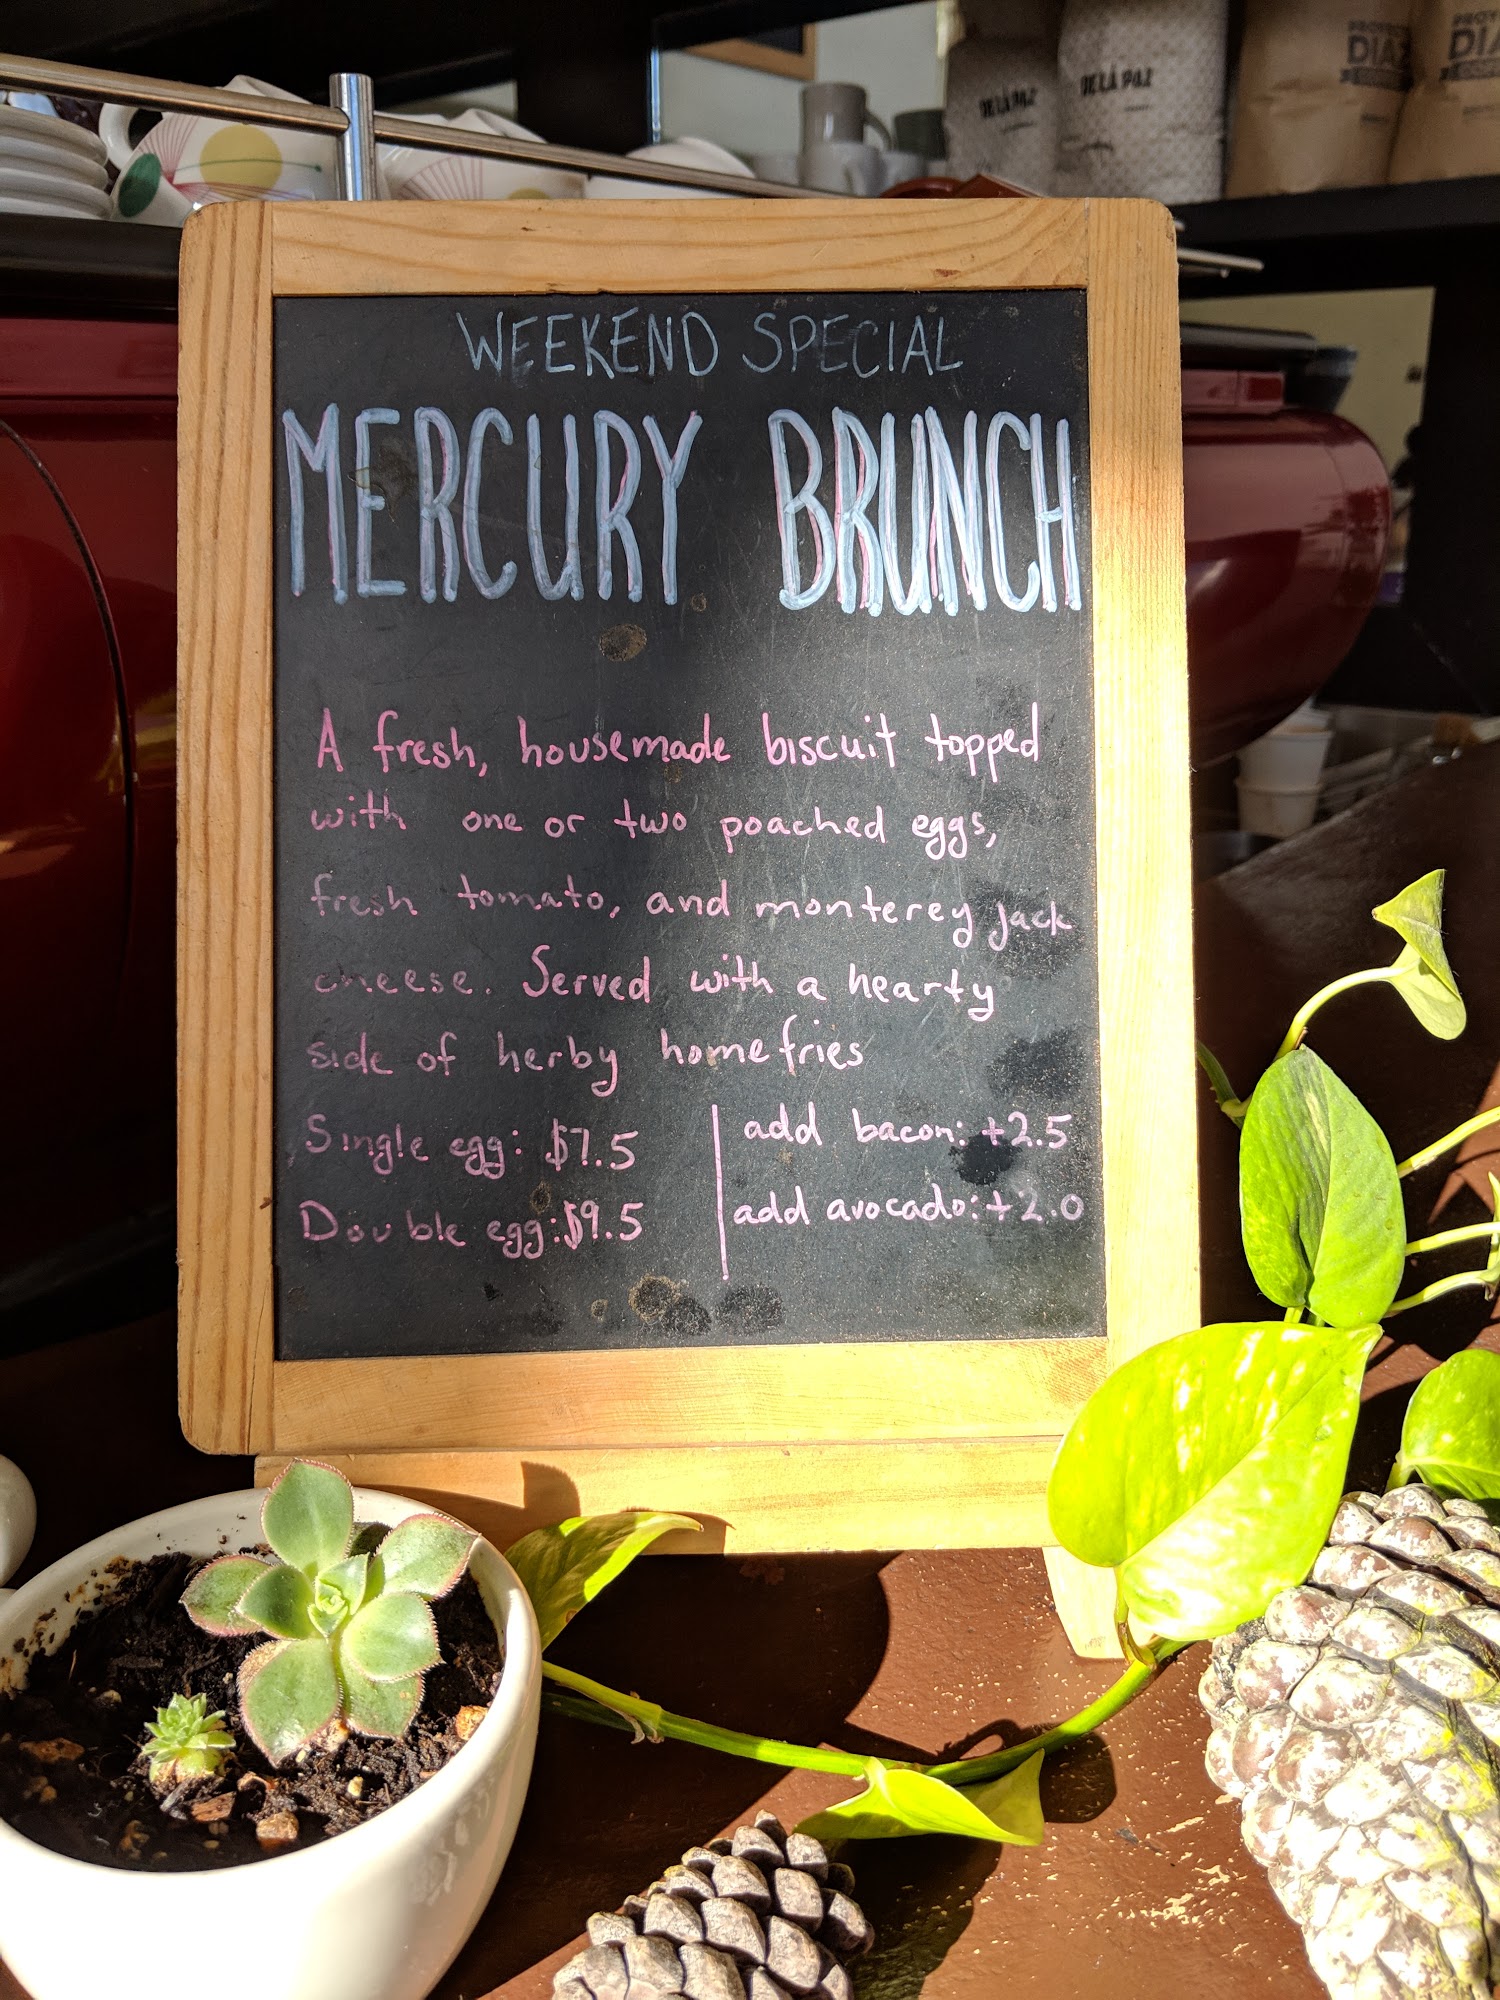 DE LA PAZ
DE LA PAZ
WEEKEND SPECIAL
MERCURY BRUNCH
A fresh, housemade biscuit topped
with one or two poached eggs,
fresh tomato, and monterey jack
cheese. Served with a hearty
side of herby homefries
Single egg: $7.5
Double egg: $9.5
add bacon: +2.5
add avocado: +2.0